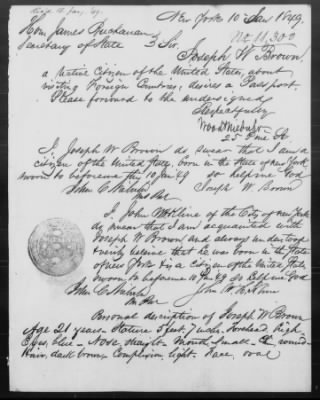 New York 10 Jan 1849.
Hon James Buchanan
Secretary of State
Sir.
No 11,302
Joseph W Brown,
a Native Citizen of the United States, about
visiting Foreign Countries, desires a Passport.
Please forward to the undersigned
Respectfully
25 Pine St
I, Joseph W Brown do swear that I am a
citizen of the United States, born in the State of New York
sworn to before me this 10 Jan 49 so help me God
John C Joseph W Brown
I, John McKline of the City of New York
do swear that I am acquainted with
Joseph W Brown and always understood
& verily believe that he was born in the State
of New York & is a citizen of the United States
sworn to before me 10 Jan 49 So help me God
John C John McKline
Personal description of Joseph W Brown
Age 21 years - Stature 5 feet, 7 inches. Forehead, high
Eyes, blue - Nose, straight - Mouth, small - Chin, round -
Hair, dark brown - Complexion, light. Face, oval